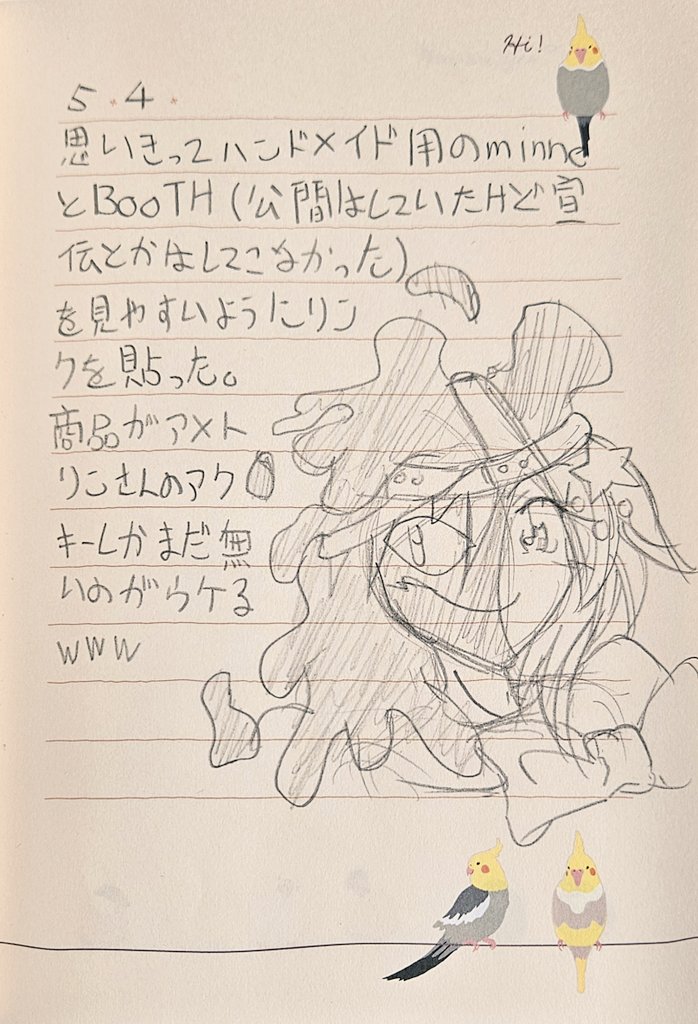 Hi!
5・4・
思いきってハンドメイド用のminne
とBOOTH(公開はしていたけど宣
伝とかはしてこなかった)
を見やすいようにリン
クを貼った。
商品がアメト
リンさんのアク
キーしかまだ無
いのがウケる
www